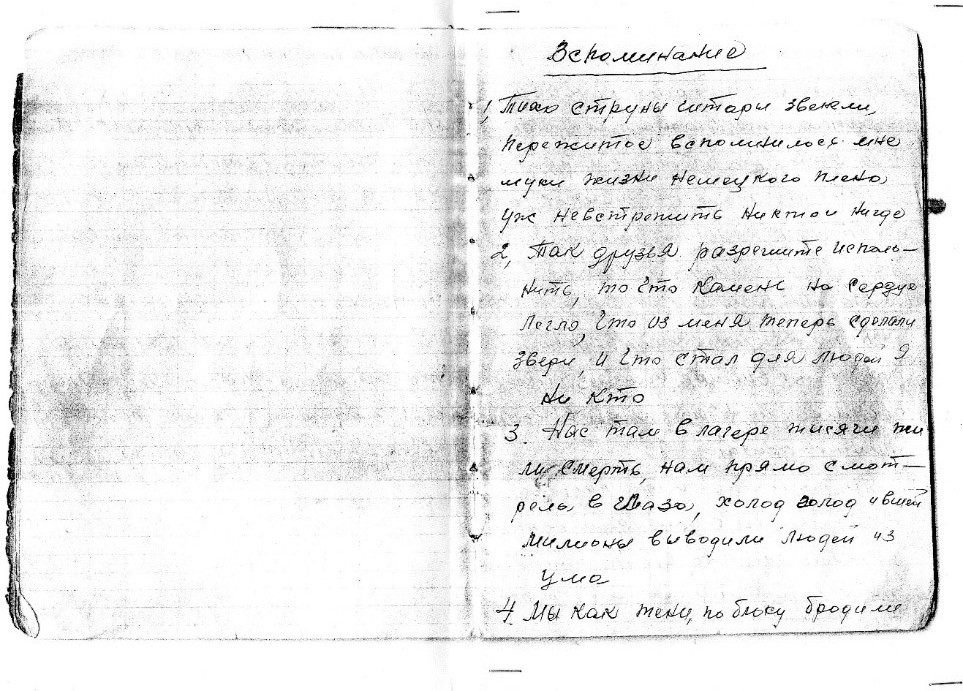 Вспоминание
1, Тихо струны гитары звенели,
Пережитое вспомнилося мне
муки жизни Немецкого плена
уж Невстретить Никтои Нигде
2, Так друзья разрешите исполь-
нить, то что Камень на Сердце
легло, что из меня теперь сделали
звери, и что стал для людей Я
Ни Кто
3. Нас там в лагере тисячи жи
ли Смерть, нам прямо смот-
рела в глаза, холод голод и вшей
милионы выводили людей из
ума
4. Мы как тени, по блоку бродили